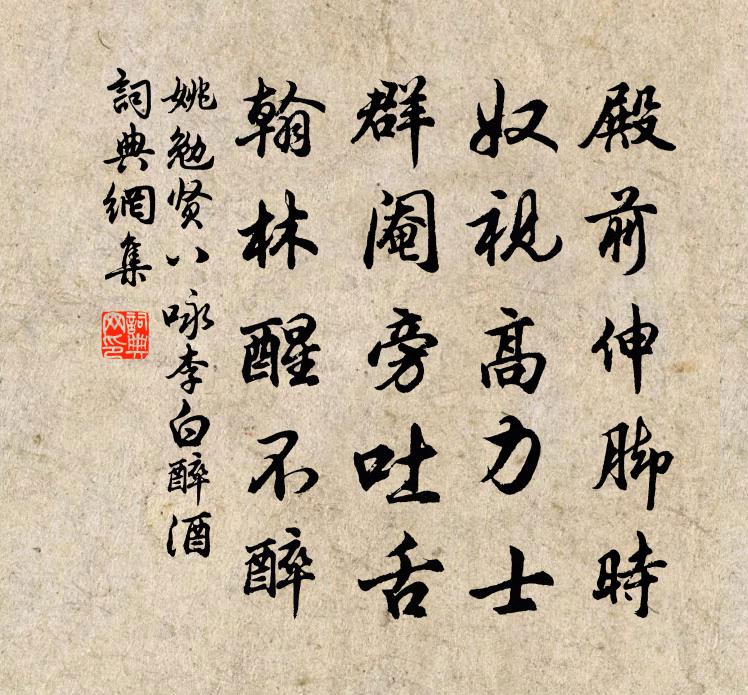 殿前伸脚時
奴視高力士
群阉旁吐舌
翰林醒不醉
姚勉贤八咏李白醉酒
詞典網集
詞典网印